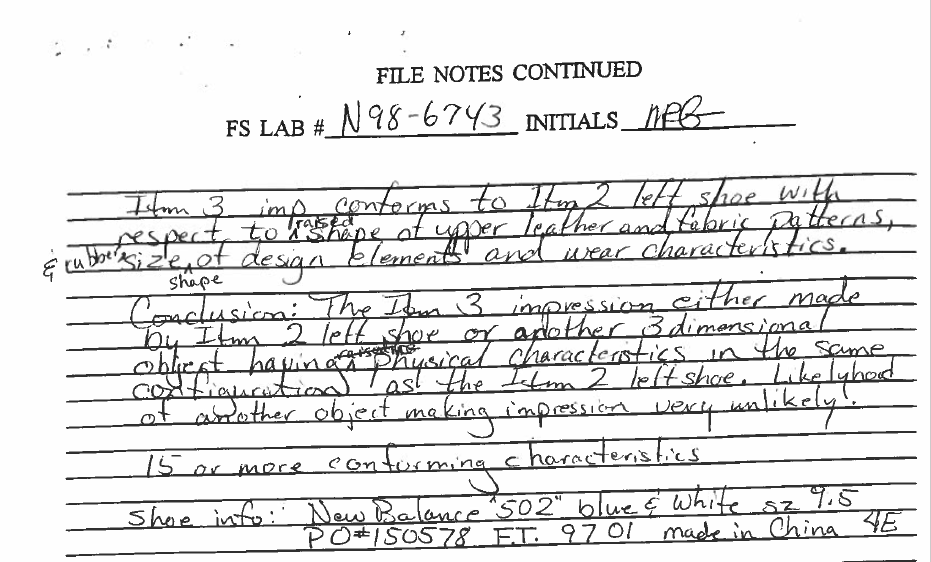 FILE NOTES CONTINUED
FS LAB # N98-6743 INITIALS
Itm 3 imp conforms to Itm 2 left shoe with
raised
respect to shape of upper leather and fabric patterns,
& rubber size, of design elements and wear characteristics.
shape
Conclusion: The Itm 3 impression either made
by Itm 2 left shoe or another 3 dimensional
object having physical characteristics in the same
configuration as the Itm 2 left shoe. Likelyhood
of another object making impression very unlikely.
15 or more conforming characteristics
Shoe info: New Balance "502" blue & white sz 9.5
PO#150578 F.T. 9701 made in China 4E